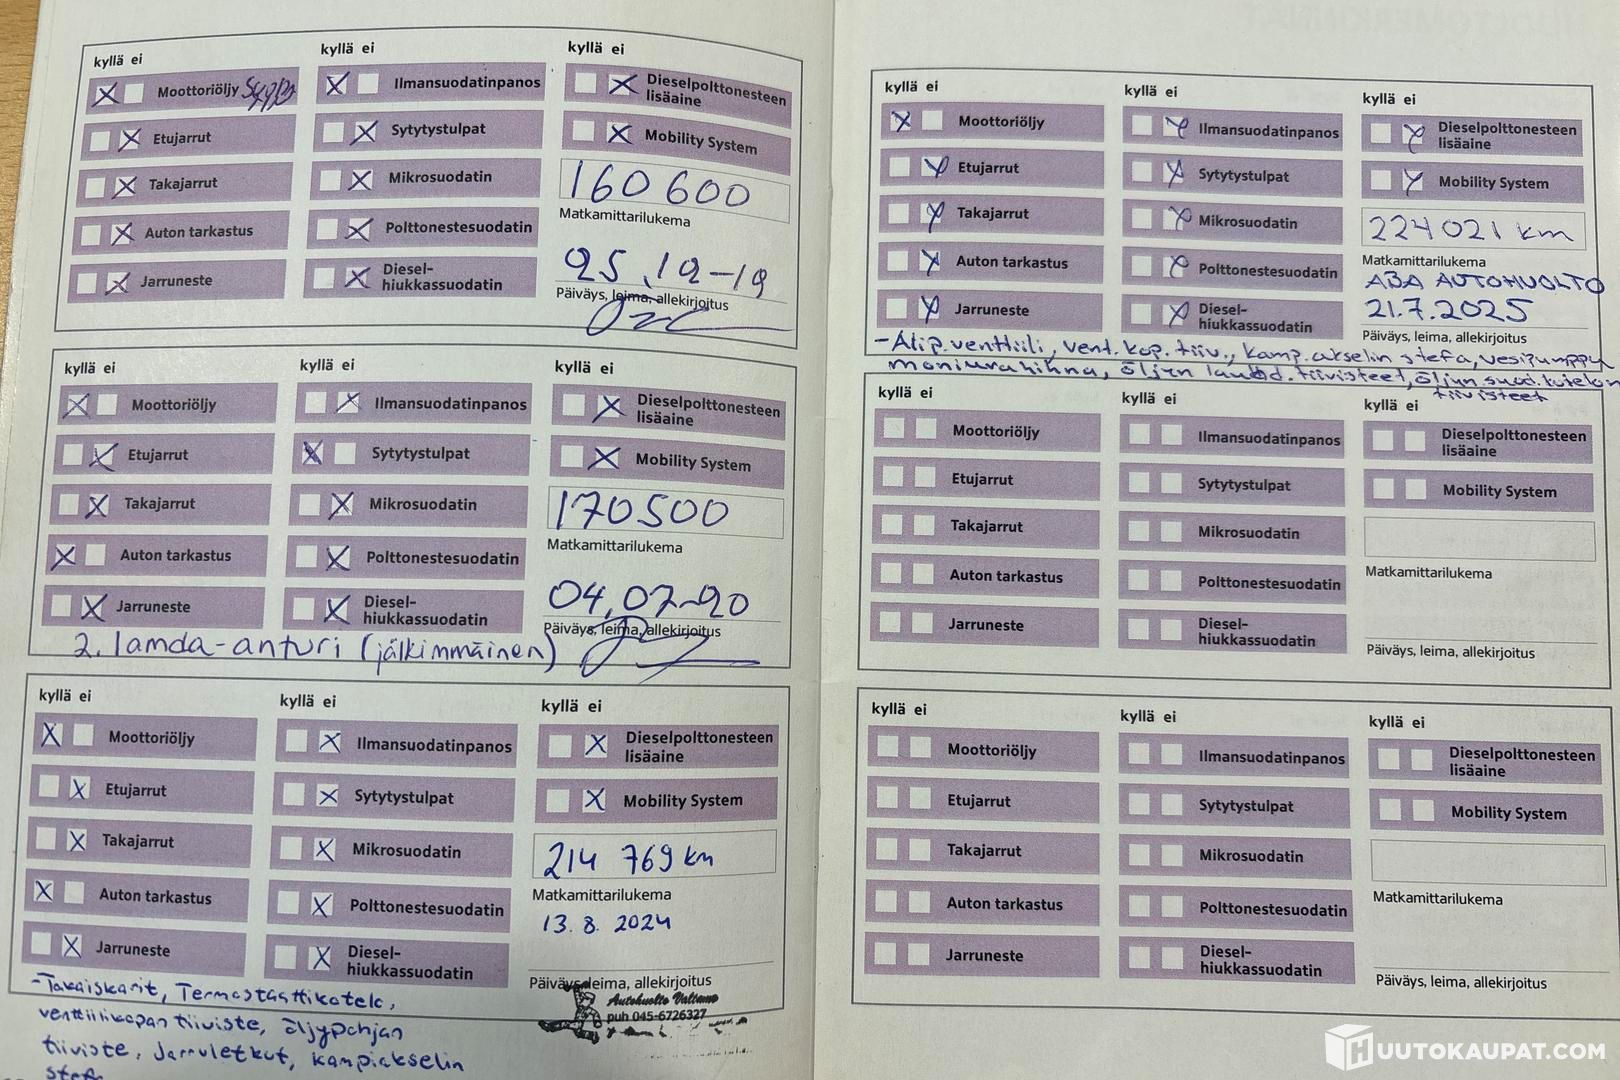 kyllä ei
Moottoriöljy
Etujarrut
Takajarrut
Auton tarkastus
Jarruneste
kyllä ei
Ilmansuodatinpanos
Sytytystulpat
Mikrosuodatin
Polttonestesuodatin
Diesel-
hiukkassuodatin
kyllä ei
Dieselpolttonesteen
lisäaine
Mobility System
160 600
Matkamittarilukema
25.12-19
Päiväys, leima, allekirjoitus
kyllä ei
Moottoriöljy
Etujarrut
Takajarrut
Auton tarkastus
Jarruneste
kyllä ei
Ilmansuodatinpanos
Sytytystulpat
Mikrosuodatin
Polttonestesuodatin
Diesel-
hiukkassuodatin
kyllä ei
Dieselpolttonesteen
lisäaine
Mobility System
170500
Matkamittarilukema
04,07-20
Päiväys, leima, allekirjoitus
2. lamda-anturi (jälkimmäinen)
kyllä ei
Moottoriöljy
Etujarrut
Takajarrut
Auton tarkastus
Jarruneste
kyllä ei
Ilmansuodatinpanos
Sytytystulpat
Mikrosuodatin
Polttonestesuodatin
Diesel-
hiukkassuodatin
kyllä ei
Dieselpolttonesteen
lisäaine
Mobility System
214 769 km
Matkamittarilukema
13. 8. 2024
Päiväys, leima, allekirjoitus
Autohuolto Valtamo
puh 045-6726327
-Takaiskarit, Termostaattikotelo,
venttiilikopan tiiviste, öljypohjan
tiiviste, Jarruletkut, kampiakselin
stefa
kyllä ei
Moottoriöljy
Etujarrut
Takajarrut
Auton tarkastus
Jarruneste
kyllä ei
Ilmansuodatinpanos
Sytytystulpat
Mikrosuodatin
Polttonestesuodatin
Diesel-
hiukkassuodatin
kyllä ei
Dieselpolttonesteen
lisäaine
Mobility System
224021 km
Matkamittarilukema
ABA AUTOHUOLTO
21.7.2025
Päiväys, leima, allekirjoitus
-Alip.venttiili, vent.kop.tiiv., kamp.akselin stefa, vesipumppu
moniurahihna, öljyn lauhd.tiivisteet, öljyn suod.kotelon
tiivisteet
kyllä ei
Moottoriöljy
Etujarrut
Takajarrut
Auton tarkastus
Jarruneste
kyllä ei
Ilmansuodatinpanos
Sytytystulpat
Mikrosuodatin
Polttonestesuodatin
Diesel-
hiukkassuodatin
kyllä ei
Dieselpolttonesteen
lisäaine
Mobility System
Matkamittarilukema
Päiväys, leima, allekirjoitus
kyllä ei
Moottoriöljy
Etujarrut
Takajarrut
Auton tarkastus
Jarruneste
kyllä ei
Ilmansuodatinpanos
Sytytystulpat
Mikrosuodatin
Polttonestesuodatin
Diesel-
hiukkassuodatin
kyllä ei
Dieselpolttonesteen
lisäaine
Mobility System
Matkamittarilukema
Päiväys, leima, allekirjoitus
HUUTOKAUPAT.COM